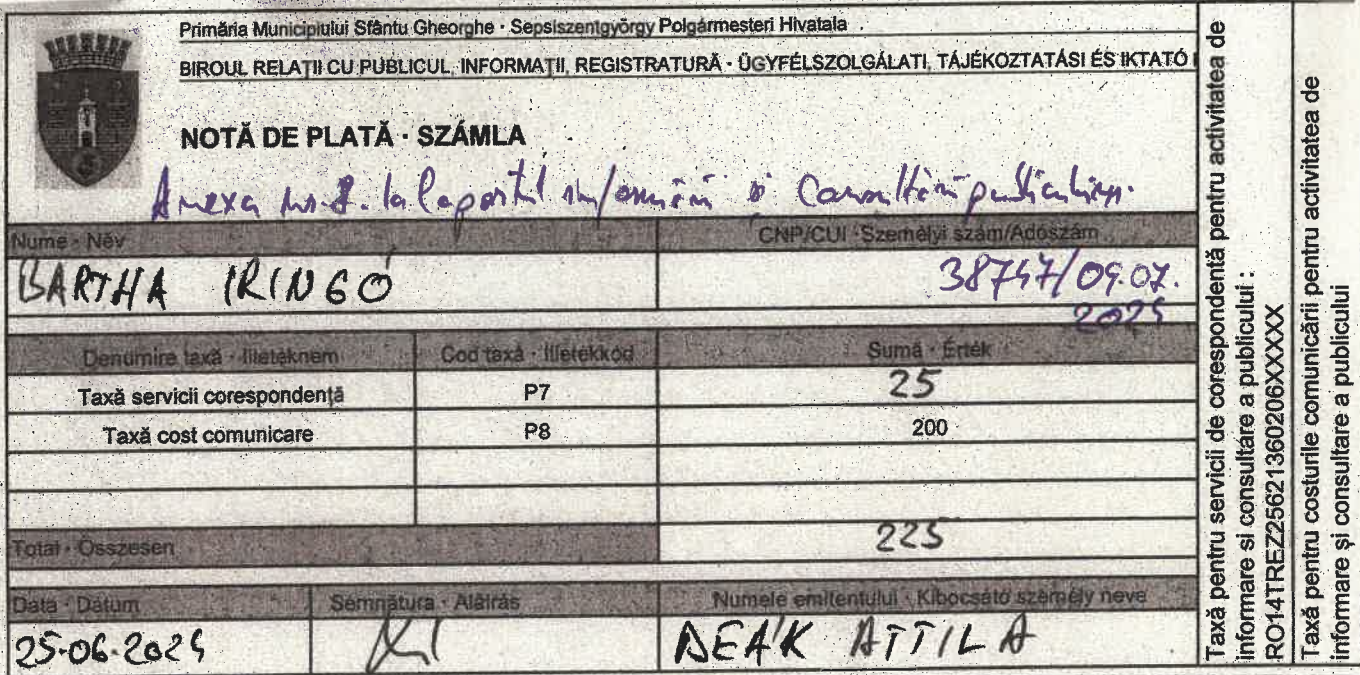 Primăria Municipiului Sfântu Gheorghe · Sepsiszentgyörgy Polgármesteri Hivatala
BIROUL RELAȚII CU PUBLICUL, INFORMAȚII, REGISTRATURĂ · ÜGYFÉLSZOLGÁLATI, TÁJÉKOZTATÁSI ÉS IKTATÓ
NOTĂ DE PLATĂ · SZÁMLA
Anexa la
Nume · Név CNP/CUI · Személyi szám/Adószám
BARTHA IRINGÓ 38747/09.07.
Denumire taxă · Illetéknem Cod taxă · Illetékkód Sumă · Érték
Taxă servicii corespondență P7 25
Taxă cost comunicare P8 200
Total · Összesen 225
Data · Dátum Semnătura · Aláírás Numele emitentului · Kibocsátó személy neve
DEÁK ATTILA
Taxă pentru servicii de corespondență pentru activitatea de
informare si consultare a publicului :
RO14TREZ25621360206XXXXX
Taxă pentru costurile comunicării pentru activitatea de
informare și consultare a publicului